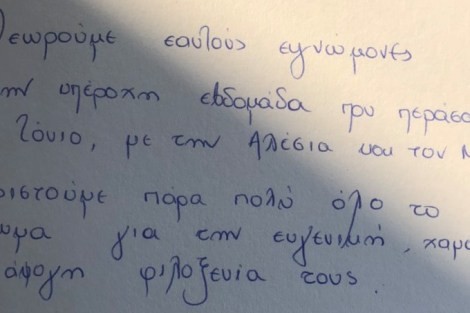 εωρούμε εαυτούς ευγνώμονες
ην υπέροχη εβδομάδα που περάσα
Ιόνιο, με την Αλέσια και τον Μ
ριστούμε πάρα πολύ όλο το
ωμα για την ευγενική, χαμο
άψογη φιλοξενία τους.